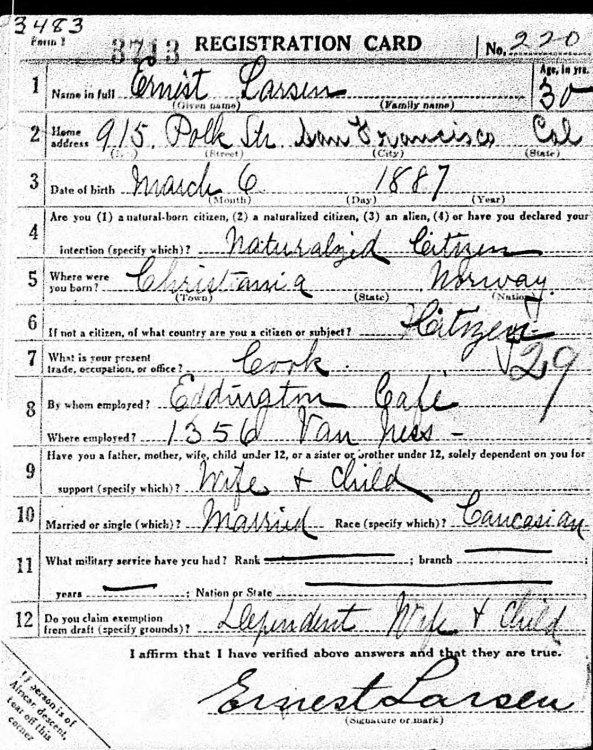 3483
Form 1 3713 REGISTRATION CARD No. 220
1 Name in full Ernest Larsen Age, in yrs. 30
(Given name) (Family name)
2 Home address 915 Polk Str. San Francisco Cal
(Street) (City) (State)
3 Date of birth March 6 1887
(Month) (Day) (Year)
Are you (1) a natural-born citizen, (2) a naturalized citizen, (3) an alien, (4) or have you declared your
4 intention (specify which)? Naturalized Citizen
5 Where were you born? Christiania Norway
(Town) (State) (Nation)
6 If not a citizen, of what country are you a citizen or subject? Citizen
7 What is your present trade, occupation, or office? Cook 29
8 By whom employed? Eddington Café
Where employed? 1356 Van Ness -
Have you a father, mother, wife, child under 12, or a sister or brother under 12, solely dependent on you for
9 support (specify which)? Wife + Child
10 Married or single (which)? Married Race (specify which)? Caucasian
11 What military service have you had? Rank ; branch ;
years ; Nation or State
12 Do you claim exemption from draft (specify grounds)? Dependent Wife + Child
I affirm that I have verified above answers and that they are true.
Ernest Larsen
(Signature or mark)
If person is of
African descent,
tear off this
corner